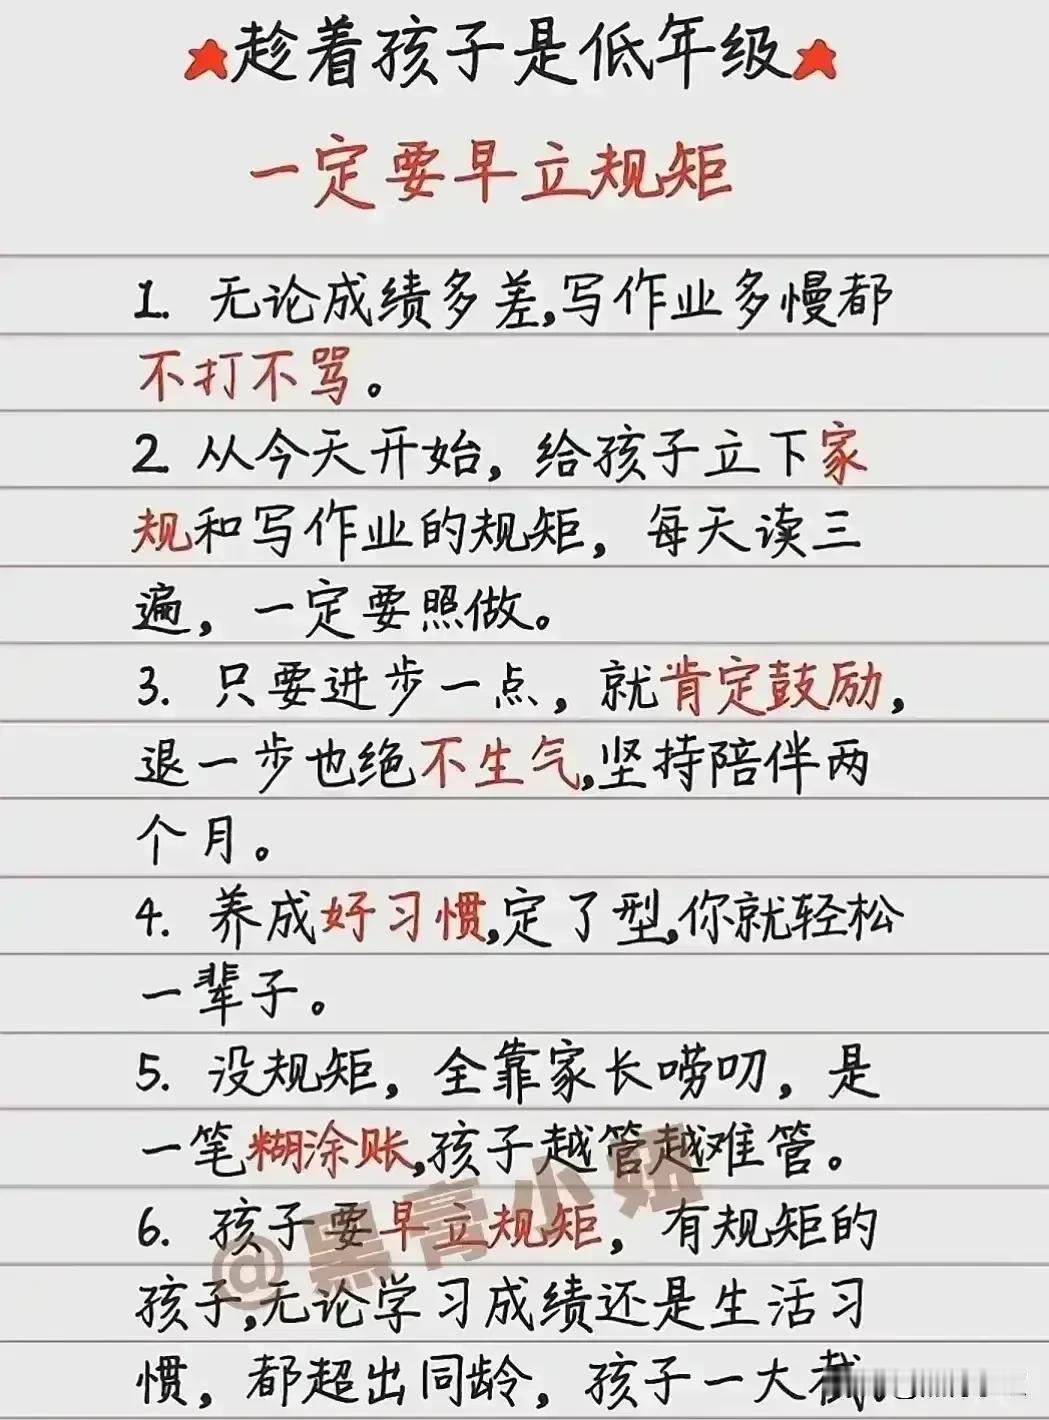 趁着孩子是低年级
一定要早立规矩
1. 无论成绩多差,写作业多慢都
不打不骂。
2. 从今天开始，给孩子立下家
规和写作业的规矩，每天读三
遍，一定要照做。
3. 只要进步一点，就肯定鼓励，
退一步也绝不生气,坚持陪伴两
个月。
4. 养成好习惯,定了型,你就轻松
一辈子。
5. 没规矩，全靠家长唠叨，是
一笔糊涂账,孩子越管越难管。
6. 孩子要早立规矩，有规矩的
孩子,无论学习成绩还是生活习
惯，都超出同龄，孩子一大截
@黑膏小妞